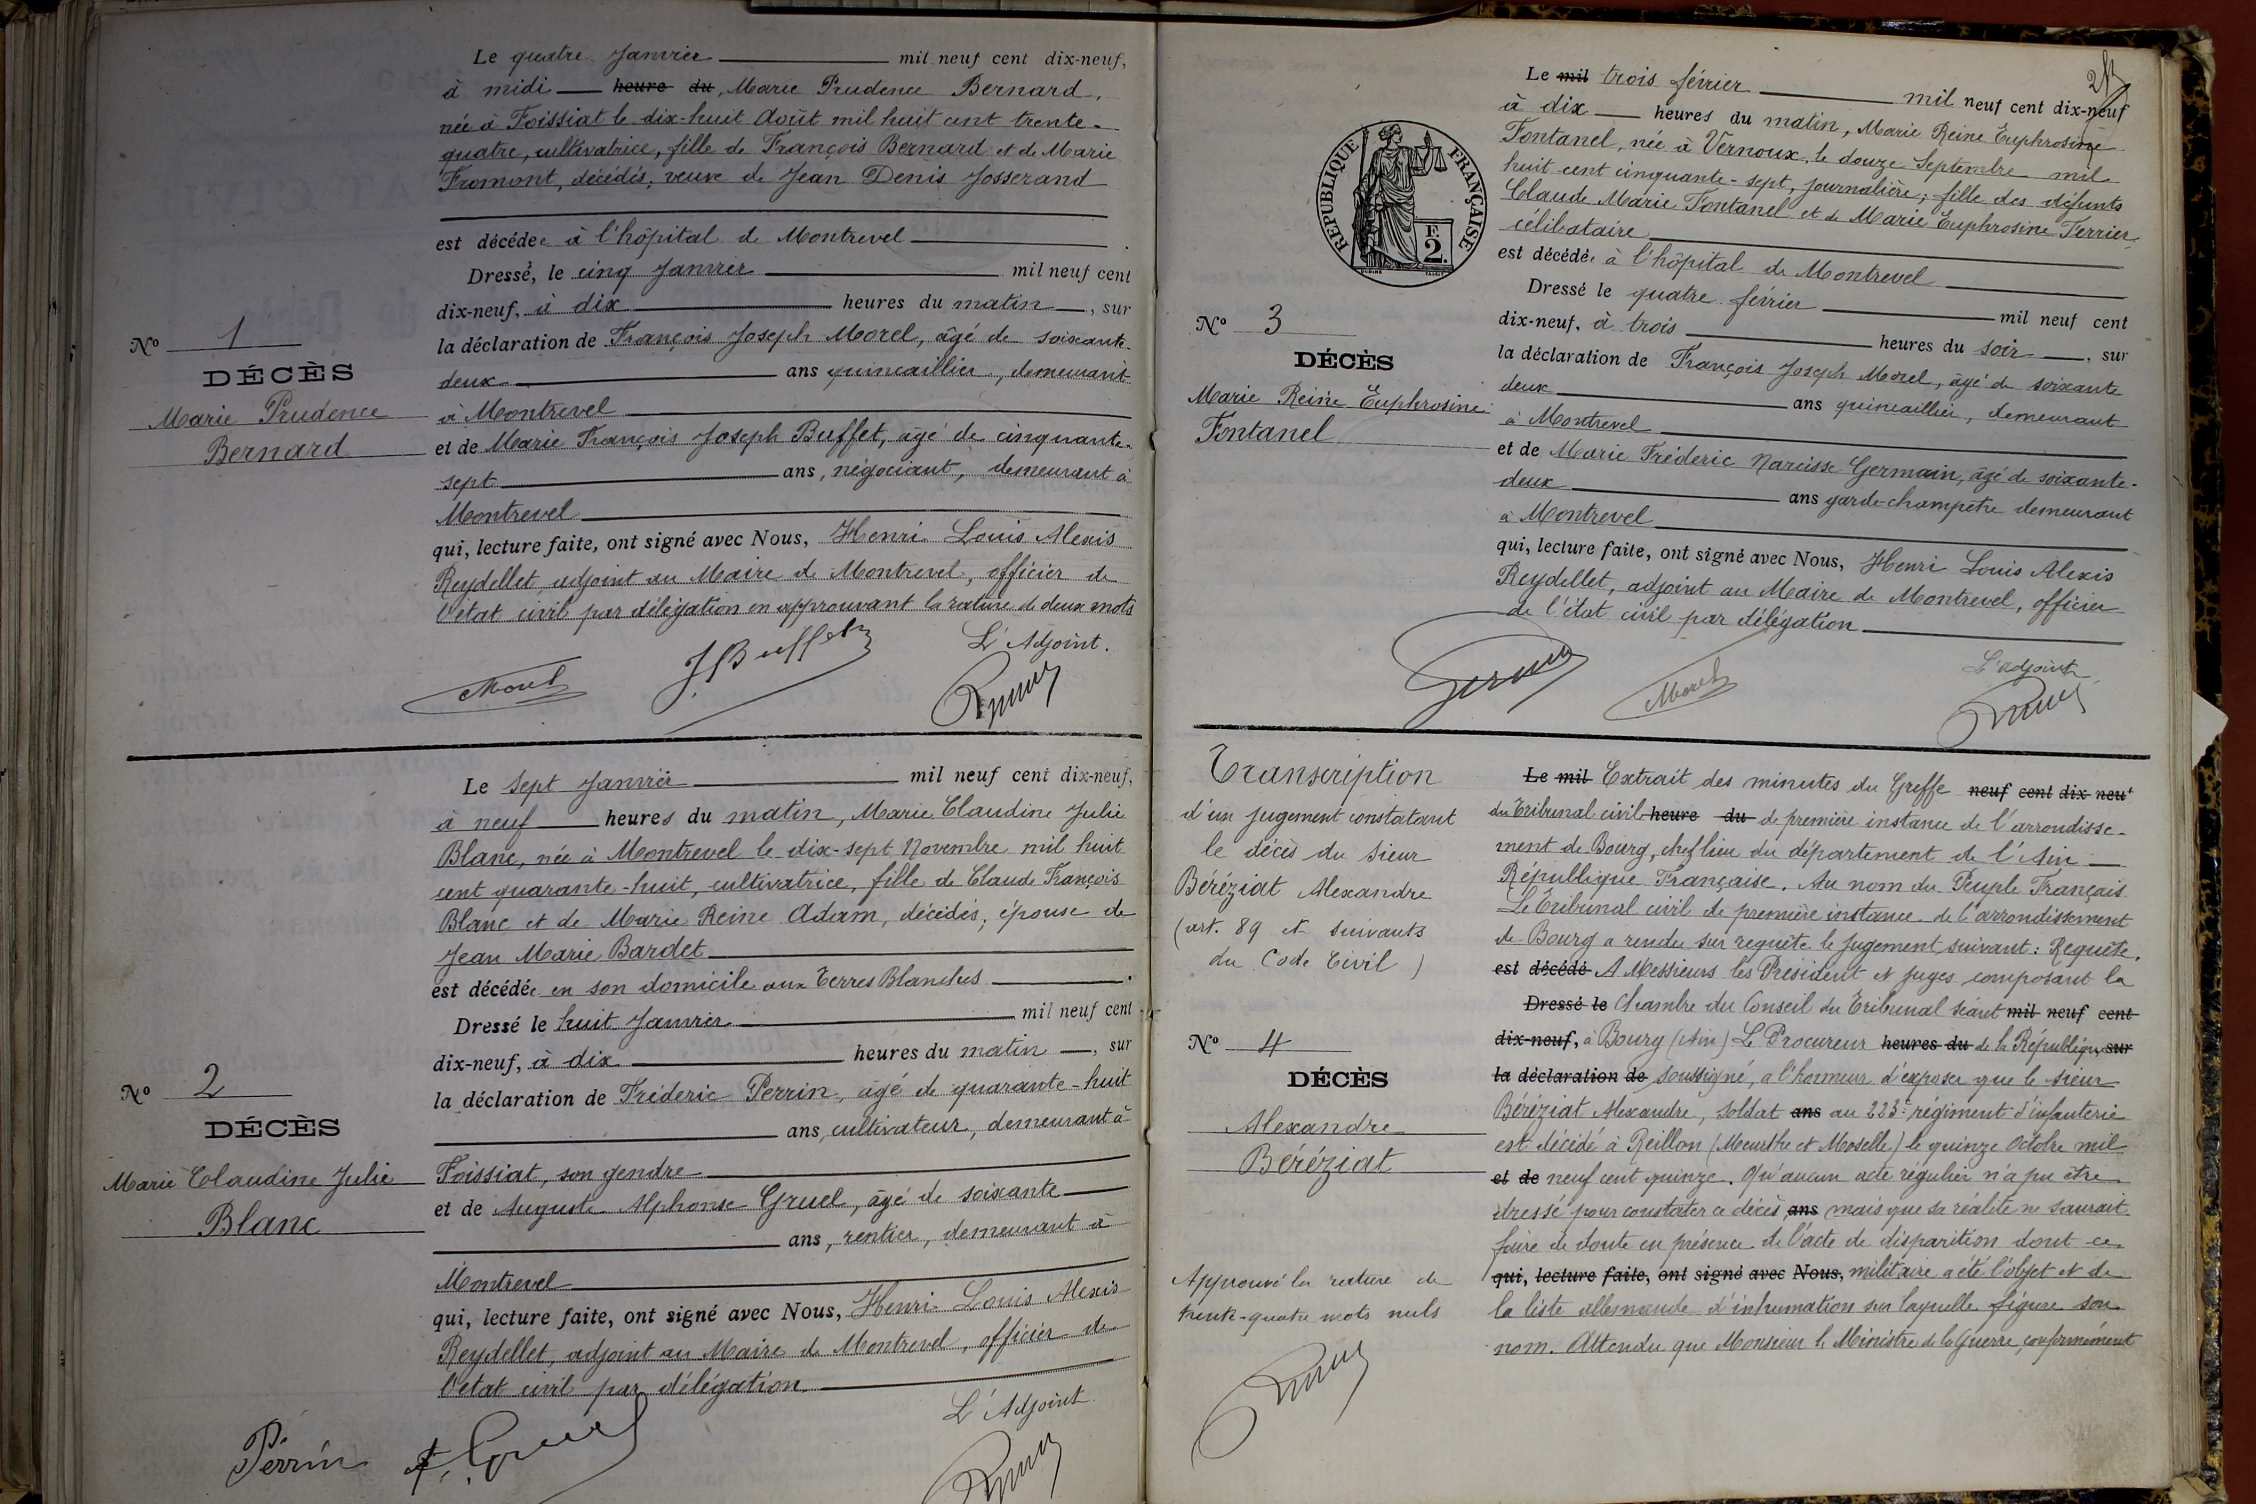 Le quatre Janvier mil neuf cent dix-neuf,
à midi heure du, Marie Prudence Bernard,
née à Foissiat le dix-huit Août mil huit cent trente-
quatre, cultivatrice, fille de François Bernard et de Marie
Fromont, décédés, veuve de Jean Denis Josserand
est décédée à l'hôpital de Montrevel.
Dressé, le cinq Janvier mil neuf cent
dix-neuf, à dix heures du matin, sur
la déclaration de François Joseph Morel, âgé de soixante-
deux ans quincaillier, demeurant
à Montrevel
et de Marie François Joseph Buffet, âgé de cinquante-
sept ans, négociant, demeurant à
Montrevel
qui, lecture faite, ont signé avec Nous, Henri Louis Alexis
Reydellet, adjoint au Maire de Montrevel, officier de
l'état civil par délégation en approuvant la rature de deux mots
L'Adjoint.
Morel
J. Buffet
No 1
DÉCÈS
Marie Prudence
Bernard
Le sept Janvier mil neuf cent dix-neuf,
à neuf heures du matin, Marie Claudine Julie
Blanc, née à Montrevel le dix-sept Novembre mil huit
cent quarante-huit, cultivatrice, fille de Claude François
Blanc et de Marie Reine Adam, décédés, épouse de
Jean Marie Bardet
est décédée en son domicile aux Terres Blanches.
Dressé le huit Janvier mil neuf cent
dix-neuf, à dix heures du matin, sur
la déclaration de Fréderic Perrin, âgé de quarante-huit
ans, cultivateur, demeurant à
Foissiat, son gendre
et de Auguste Alphonse Gruel, âgé de soixante
ans, rentier, demeurant à
Montrevel
qui, lecture faite, ont signé avec Nous, Henri Louis Alexis
Reydellet, adjoint au Maire de Montrevel, officier de
l'état civil par délégation
L'Adjoint
Perrin
A. Gruel
No 2
DÉCÈS
Marie Claudine Julie
Blanc
Le mil trois février mil neuf cent dix-neuf
à dix heures du matin, Marie Reine Euphrosine
Fontanel, née à Vernoux, le douze Septembre mil
huit cent cinquante-sept, journalière, fille des défunts
Claude Marie Fontanel et de Marie Euphrosine Terrier,
célibataire
est décédée à l'hôpital de Montrevel
Dressé le quatre février mil neuf cent
dix-neuf, à trois heures du soir, sur
la déclaration de François Joseph Morel, âgé de soixante
deux ans quincaillier, demeurant
à Montrevel
et de Marie Fréderic Narcisse Germain, âgé de soixante-
deux ans garde-champêtre demeurant
à Montrevel
qui, lecture faite, ont signé avec Nous, Henri Louis Alexis
Reydellet, adjoint au Maire de Montrevel, officier
de l'état civil par délégation
L'adjoint
Germain
Morel
REPUBLIQUE FRANÇAISE
F.
2.
No 3
DÉCÈS
Marie Reine Euphrosine
Fontanel
Transcription
d'un jugement constatant
le décès du sieur
Béréziat Alexandre
(art. 89 et suivants
du Code Civil)
No 4
DÉCÈS
Alexandre
Béréziat
Approuvé la rature de
trente-quatre mots nuls
Le mil Extrait des minutes du Greffe neuf cent dix neuf
du Tribunal civil heure du de première instance de l'arrondisse-
ment de Bourg, chef lieu du département de l'Ain
République Française. Au nom du Peuple Français
Le Tribunal civil de première instance de l'arrondissement
de Bourg a rendu sur requête le jugement suivant: Requête.
est décédé A Messieurs les Président et juges composant la
Dressé le Chambre du Conseil du Tribunal séant mil neuf cent
dix-neuf, à Bourg (Ain) Le Procureur heures du de la République sur
la déclaration de soussigné, a l'honneur d'exposer que le sieur
Béréziat Alexandre, soldat ans au 223e régiment d'infanterie
est décédé à Reillon (Meurthe et Moselle) le quinze Octobre mil
et de neuf cent quinze. Qu'aucun acte régulier n'a pu être
dressé pour constater ce décès ans mais que sa réalité ne saurait
faire de doute en présence de l'acte de disparition dont ce
qui, lecture faite, ont signé avec Nous, militaire a été l'objet et de
la liste allemande d'inhumation sur laquelle figure son
nom. Attendu que Monsieur le Ministre de la Guerre, conformément